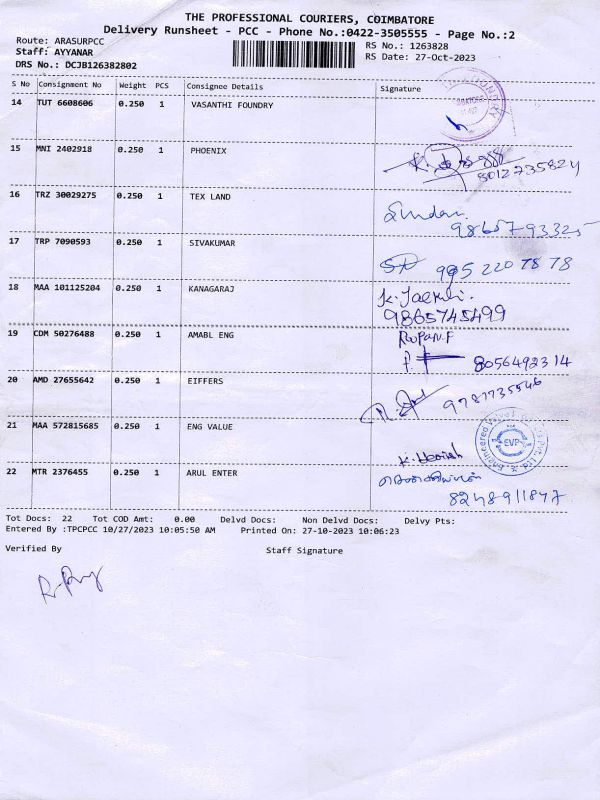 THE PROFESSIONAL COURIERS, COIMBATORE
Delivery Runsheet - PCC - Phone No.:0422-3505555 - Page No.:2
Route: ARASURPCC
Staff: AYYANAR
DRS No.: DCJB126382802
RS No.: 1263828
RS Date: 27-Oct-2023
S No Consignment No Weight PCS Consignee Details Signature
14 TUT 6608606 0.250 1 VASANTHI FOUNDRY
15 MNI 2402918 0.250 1 PHOENIX
8012735824
16 TRZ 30029275 0.250 1 TEX LAND
9865793325
17 TRP 7090593 0.250 1 SIVAKUMAR
995 220 78 78
18 MAA 101125204 0.250 1 KANAGARAJ
9865745499
19 CDM 50276488 0.250 1 AMABL ENG
Rupan.P
8056492314
20 AMD 27655642 0.250 1 EIFFERS
9787735546
21 MAA 572815685 0.250 1 ENG VALUE
K. Harish
EVP
22 MTR 2376455 0.250 1 ARUL ENTER
8248911847
Tot Docs: 22 Tot COD Amt: 0.00 Delvd Docs: Non Delvd Docs: Delvy Pts:
Entered By :TPCPCC 10/27/2023 10:05:50 AM Printed On: 27-10-2023 10:06:23
Verified By Staff Signature